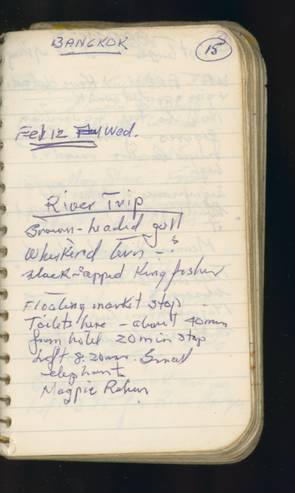 BANGKOK
15
Feb 12 Wed.
River Trip
Brown-headed gull
Whiskered tern - ?
Black-capped Kingfisher
Floating market stop
Toilets here - about 40 min
from hotel 20 min stop
Left 8:20 am. Small
elephant
Magpie Robin